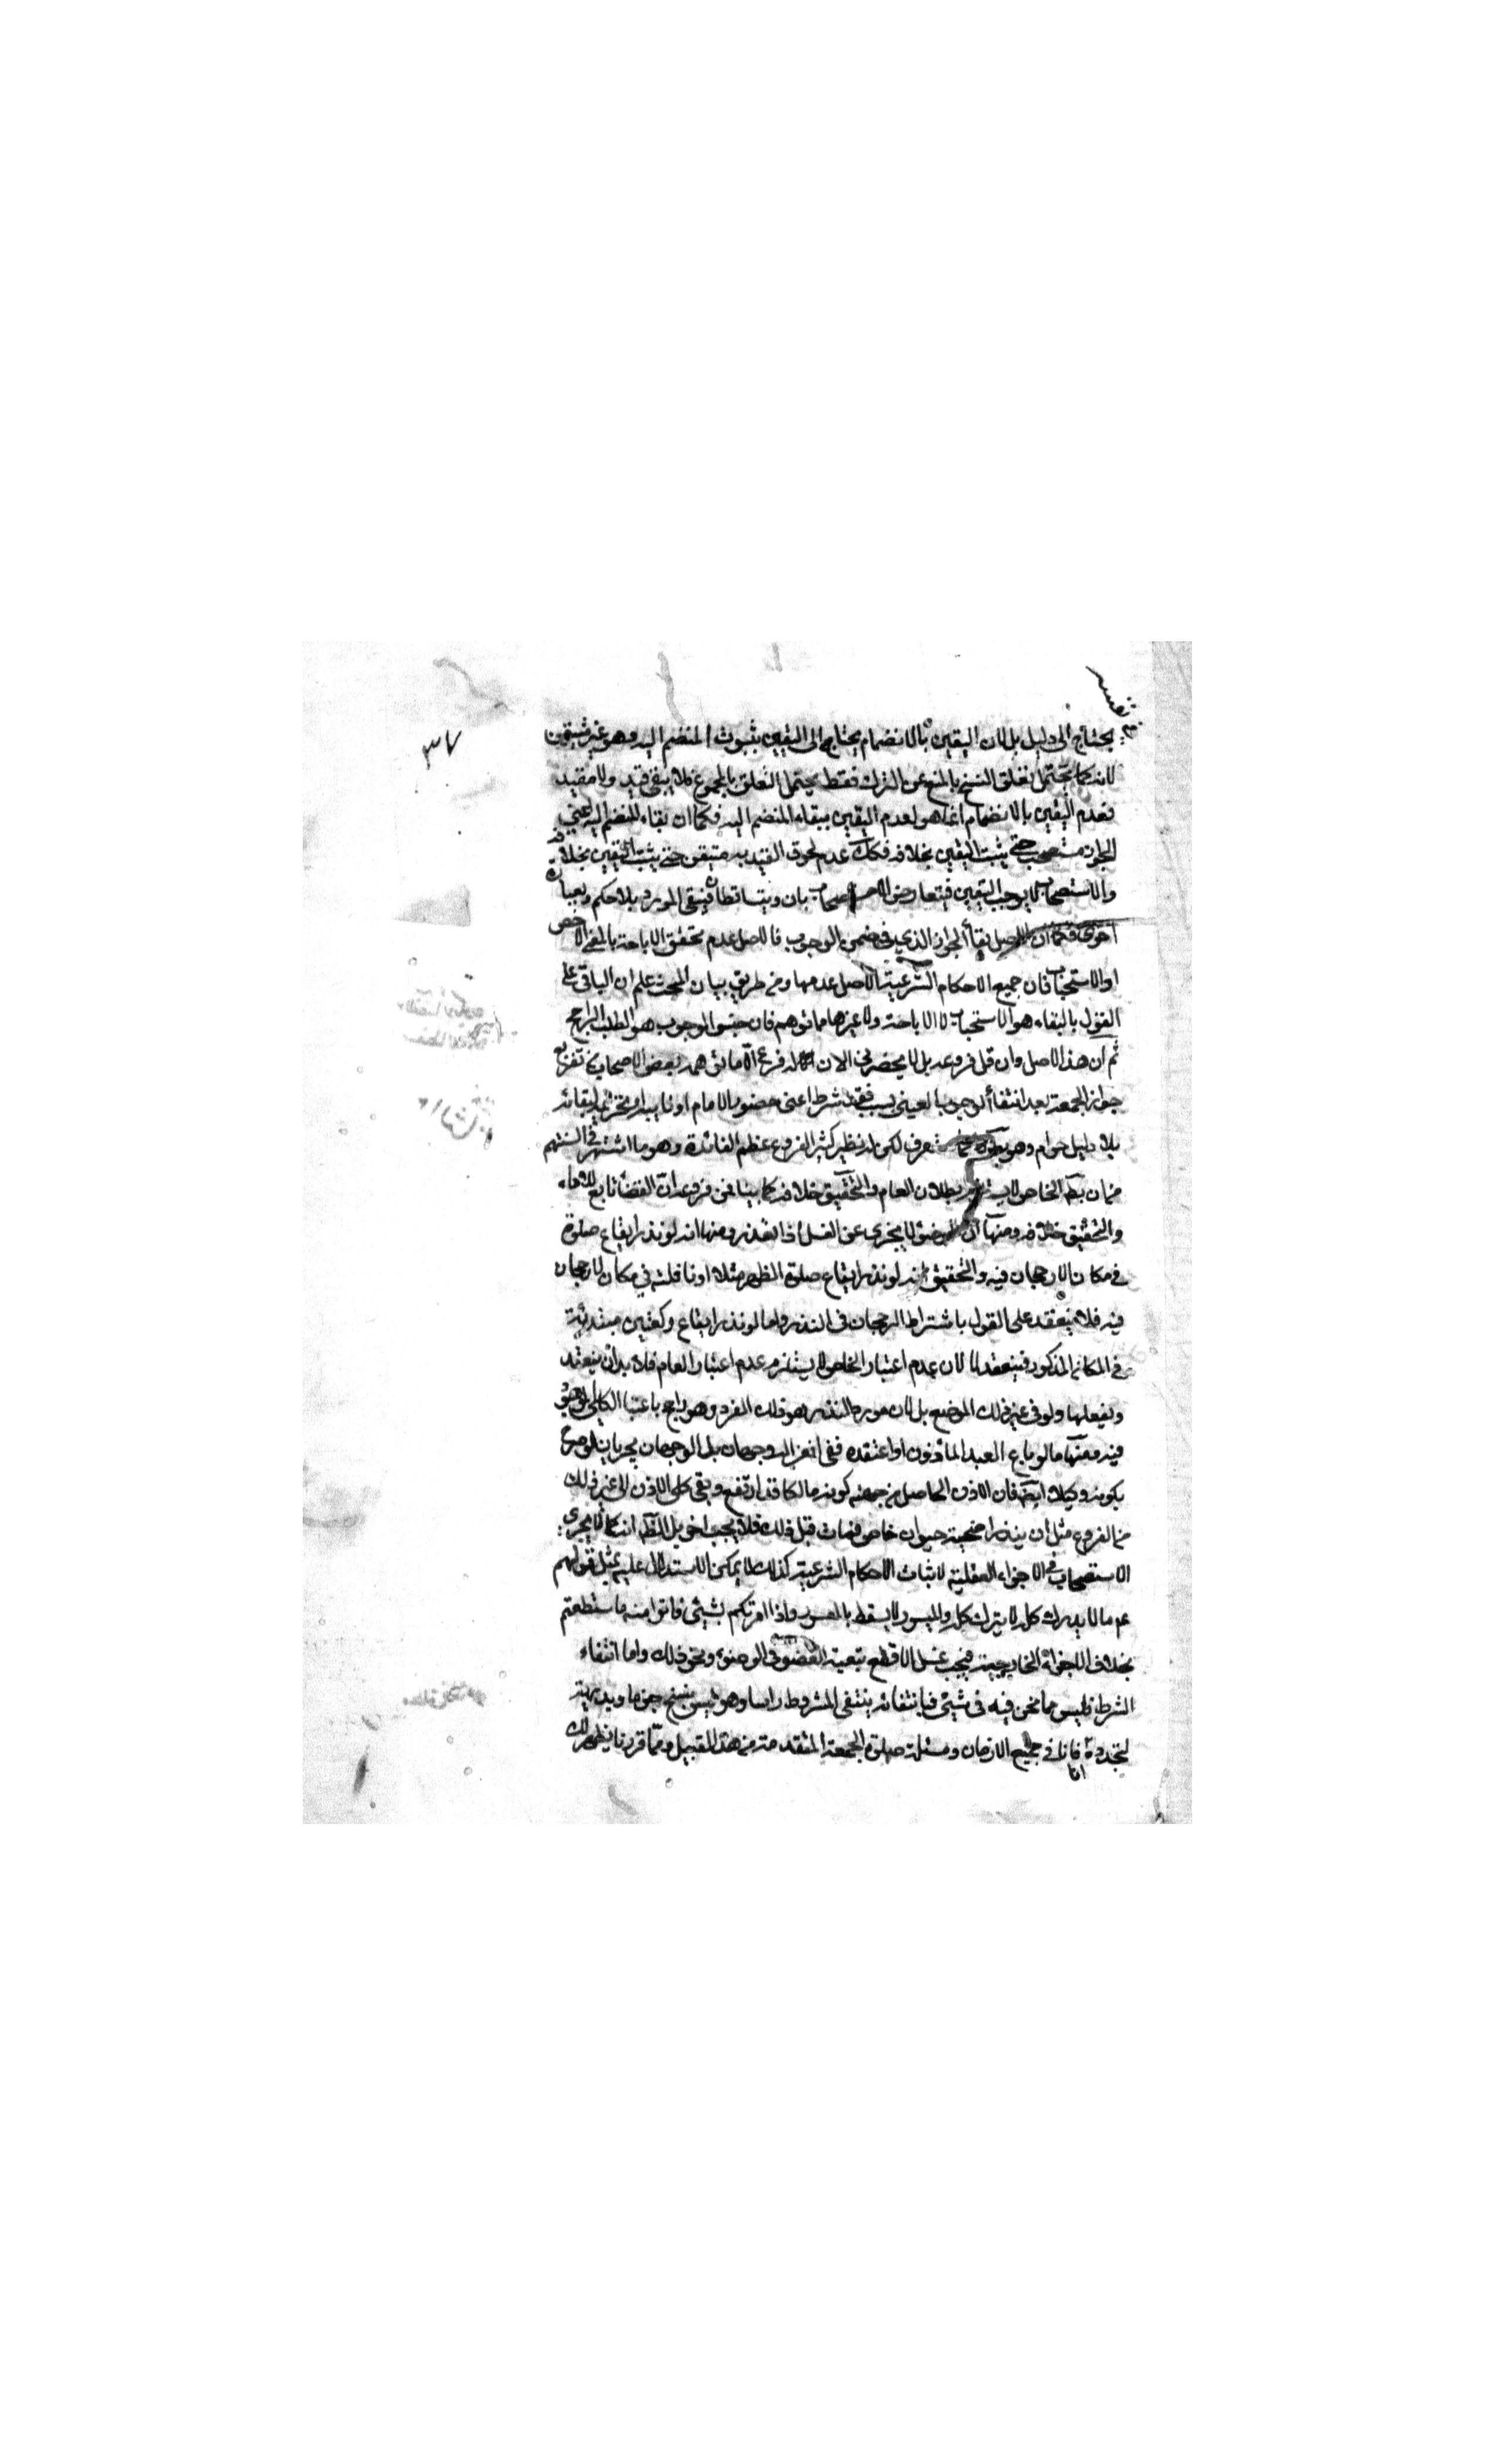 نفسه
٣٧
يحتاج الى دليل بل لان اليقين بالانضمام يحتاج الى اليقين بثبوت المنضم اليه وهو غير متيقن
لانه كما يحتمل تعلق النسخ بالمنع عن الترك فقط يحتمل التعلق بالمجموع فلا يبقى قيد ولا مقيد
فعدم اليقين بالانضمام انما هو لعدم اليقين ببقاء المنضم اليه فكما ان بقاء المنضم اليه اعني
الجواز مستصحب حتى يثبت اليقين بخلافه فكك عدم لحوق القيد به متيقن حتى يثبت اليقين بخلافه
والاستصحاب لا يوجب اليقين فيتعارض الاستصحابان ويتساقطان فيبقى المورد بلا حكم وبعبارة
اخرى فكما ان الاصل بقاء الجواز الذي في ضمن الوجوب فالاصل عدم تحقق الاباحة بالمعنى الاخص
او الاستحباب فان جميع الاحكام الشرعية الاصل عدمها ومن طريق بيان المبحث علم ان الباقي على
القول بالبقاء هو الاستحباب لا الاباحة ولا غيرها مما توهم فان جنس الوجوب هو الطلب الراجح
ثم ان هذا الاصل وان قل فروعه بل لا يحضرني الان له فرع الا ما توهمه بعض الاصحاب في تفريع
جواز الجمعة بعد انتفاء الوجوب العيني بسبب فقد شرطه اعني حضور الامام او نايبه او تحريمه لبقائه
بلا دليل حرام وهو كما تعرف لكن له نظير كثير الفروع عظيم الفائدة وهو ما اشتهر في السنتهم
من ان بطلان الخاص لا يستلزم بطلان العام والتحقيق خلافه كما بينا فمن فروعه ان القضاء تابع للاداء
والتحقيق خلافه ومنها ان الوضوء لا يجزي عن الغسل اذا تعذر ومنها انه لو نذر ايقاع صلوة
في مكان لا رجحان فيه والتحقيق انه لو نذر ايقاع صلوة الظهر مثلا او نافلته في مكان لا رجحان
فيه فلا ينعقد على القول باشتراط الرجحان في النذر واما لو نذر ايقاع ركعتين مبتدئة
في المكان المذكور فينعقد لا لان عدم اعتبار الخاص لا يستلزم عدم اعتبار العام فلا بد ان ينعقد
ويفعلها ولو في غير ذلك الموضع بل لان مورد النذر هو ذلك الفرد وهو راجح باعتبار الكلي الموجود
فيه ومنها ما لو باع العبد المأذون او اعتقه ففي انعزاله وجهان بل الوجهان يجريان لو صرح
بكونه وكيلا ايضا فان الاذن الحاصل من جهة كونه مالكا قد ارتفع وبقي كلي الاذن الى غير ذلك
من الفروع مثل ان ينذر اضحية حيوان خاص فمات قبل ذلك فلا يجب اخرى بل الظاهر انه كما لا يجري
الاستصحاب في الاجزاء العقلية لاثبات الاحكام الشرعية كذلك لا يمكن الاستدلال عليه بمثل قولهم
عم ما لا يدرك كله لا يترك كله والميسور لا يسقط بالمعسور واذا امرتكم بشيئ فاتوا منه ما ستطعتم
بخلاف الاجزاء الخارجية فيجب غسل الاقطع بقية العضو في الوضوء ونحو ذلك واما انتفاء
الشرط فليس مما نحن فيه في شيئ فبانتفائه ينتفي المشروط راسا وهو ليس بنسخ جزما وبديهية
لتجدده انا فانا في جميع الازمان ومسئلة صلوة الجمعة المتقدمة من هذا القبيل ومما قررنا يظهر لك